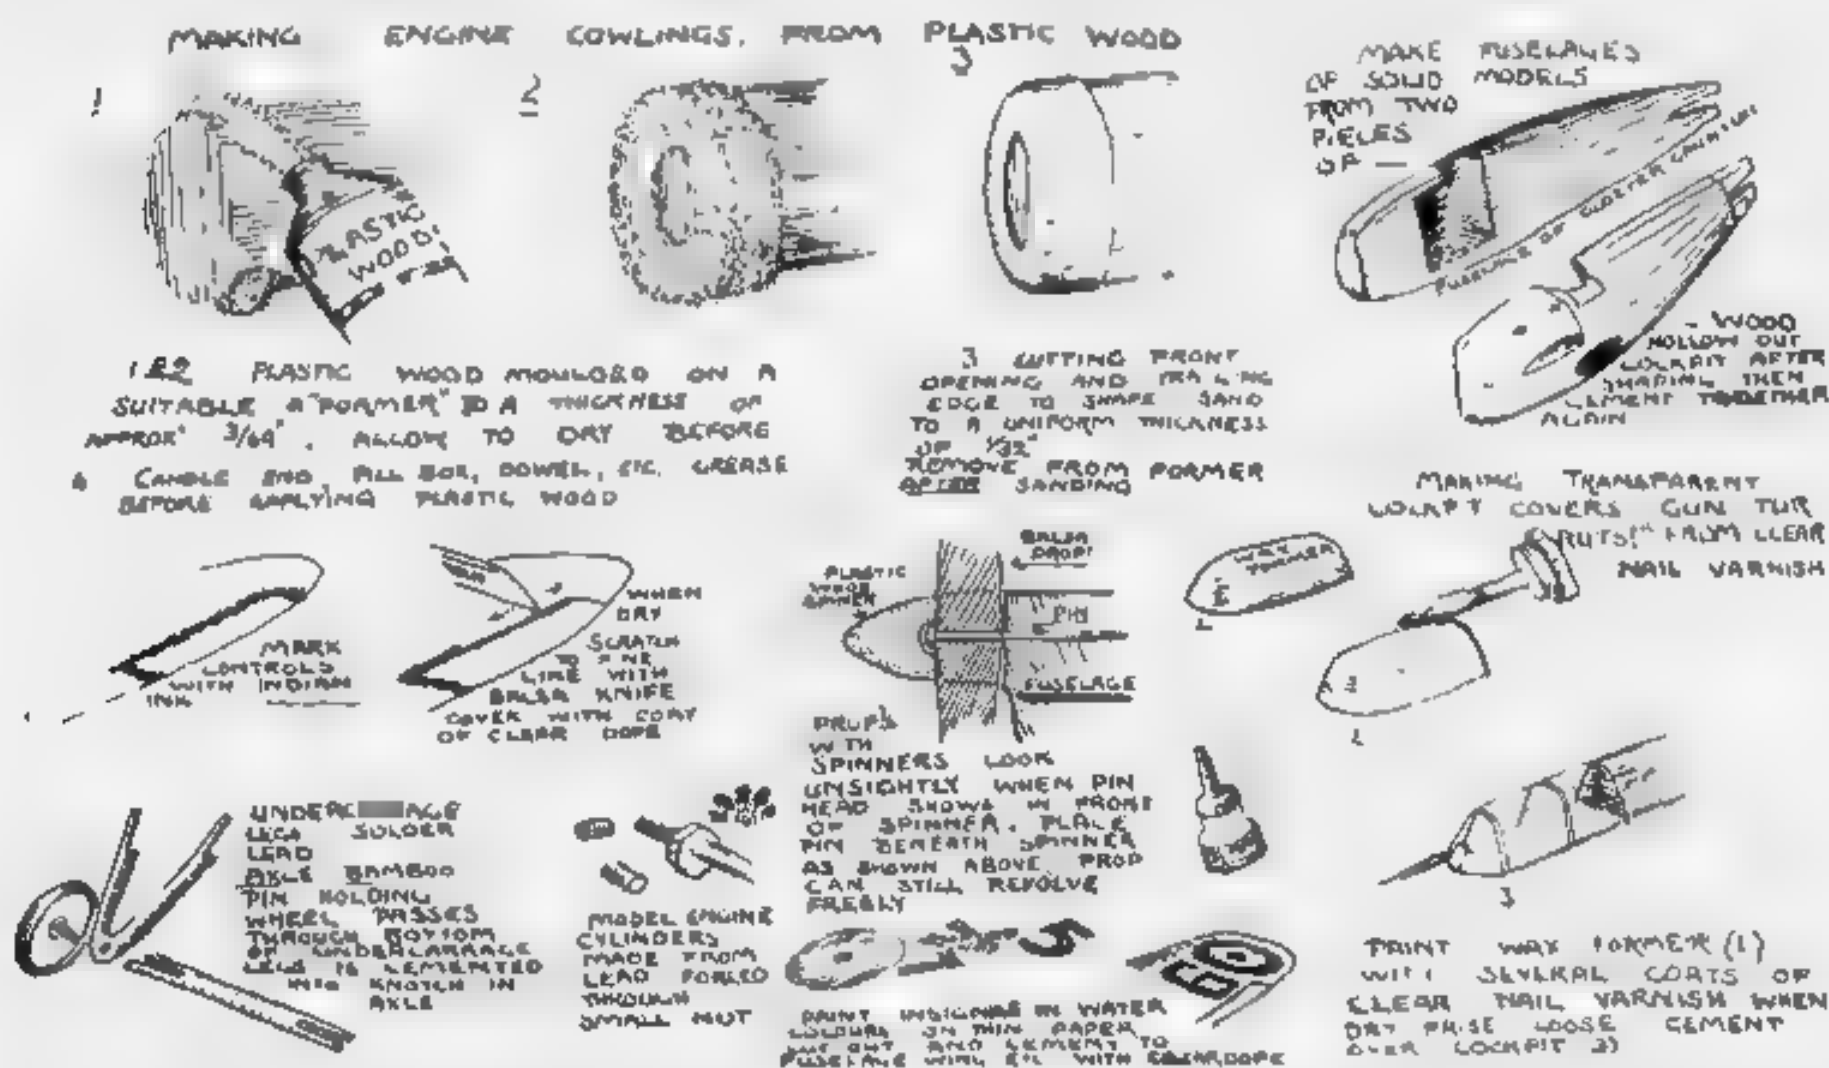 MAKING ENGINE COWLINGS, FROM PLASTIC WOOD
1
2
3
PLASTIC
WOOD
1 & 2 PLASTIC WOOD MOULDED ON A
SUITABLE "FORMER" TO A THICKNESS OF
APPROX 3/64". ALLOW TO DRY BEFORE
CANDLE END, PILL BOX, DOWEL, ETC. GREASE
BEFORE APPLYING PLASTIC WOOD
3 CUTTING FRONT
OPENING AND TRAILING
EDGE TO SHAPE SAND
TO A UNIFORM THICKNESS
OF 1/32"
REMOVE FROM FORMER
AFTER SANDING
MAKE FUSELAGES
OF SOLID MODELS
FROM TWO
PIECES
OF —
FUSELAGE OF GLOSTER
- WOOD
HOLLOW OUT
COCKPIT AFTER
SHAPING THEN
CEMENT TOGETHER
AGAIN
MARK
CONTROLS
WITH INDIAN
INK
WHEN
DRY
SCRATCH
TO FINE
LINE WITH
BALSA KNIFE
COVER WITH COAT
OF CLEAR DOPE
PLASTIC
WOOD
SPINNER
BALSA
PROP
PIN
FUSELAGE
PROPS
WITH
SPINNERS LOOK
UNSIGHTLY WHEN PIN
HEAD SHOWS IN FRONT
OF SPINNER. PLACE
PIN BENEATH SPINNER
AS SHOWN ABOVE PROP
CAN STILL REVOLVE
FREELY
MAKING TRANSPARENT
COCKPIT COVERS GUN TUR
RETS FROM CLEAR
NAIL VARNISH
WAX
FORMER
3
PAINT WAX FORMER (1)
WITH SEVERAL COATS OF
CLEAR NAIL VARNISH WHEN
DRY PRISE LOOSE CEMENT
OVER COCKPIT 3)
LEGS SOLDER
LEAD
AXLE BAMBOO
PIN HOLDING
WHEEL PASSES
THROUGH BOTTOM
OF UNDERCARRAGE
LEGS IS CEMENTED
INTO KNOTCH IN
AXLE
MODEL ENGINE
CYLINDERS
MADE FROM
LEAD FORCED
THROUGH
SMALL NUT
60
PAINT INSIGNIAE IN WATER
COLOURS ON THIN PAPER
CUT OUT AND CEMENT TO
FUSELAGE WING ETC WITH CLEAR DOPE